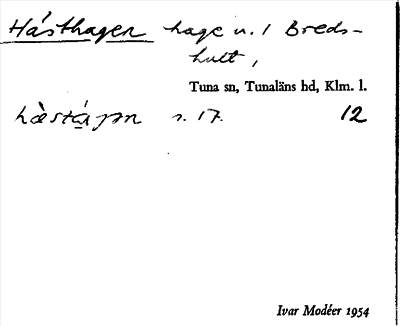 Hásthagen hage u. 1 Breds-
hult,
Tuna sn, Tunaläns hd, Klm. l.
s. 17. 12
Ivar Modéer 1954